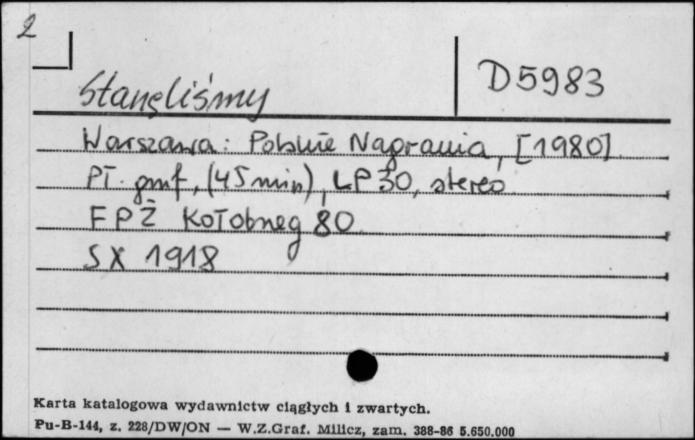 2
D5983
Stanęliśmy
Warszawa: Polskie Nagrania, [1980]
Pł. gmf, (45 min), LP 30, stereo
FPŻ Kołobrzeg 80
SX 1918
Karta katalogowa wydawnictw ciągłych i zwartych.
Pu-B-144, z. 228/DW/ON — W.Z.Graf. Milicz, zam. 388-86 5.650.000